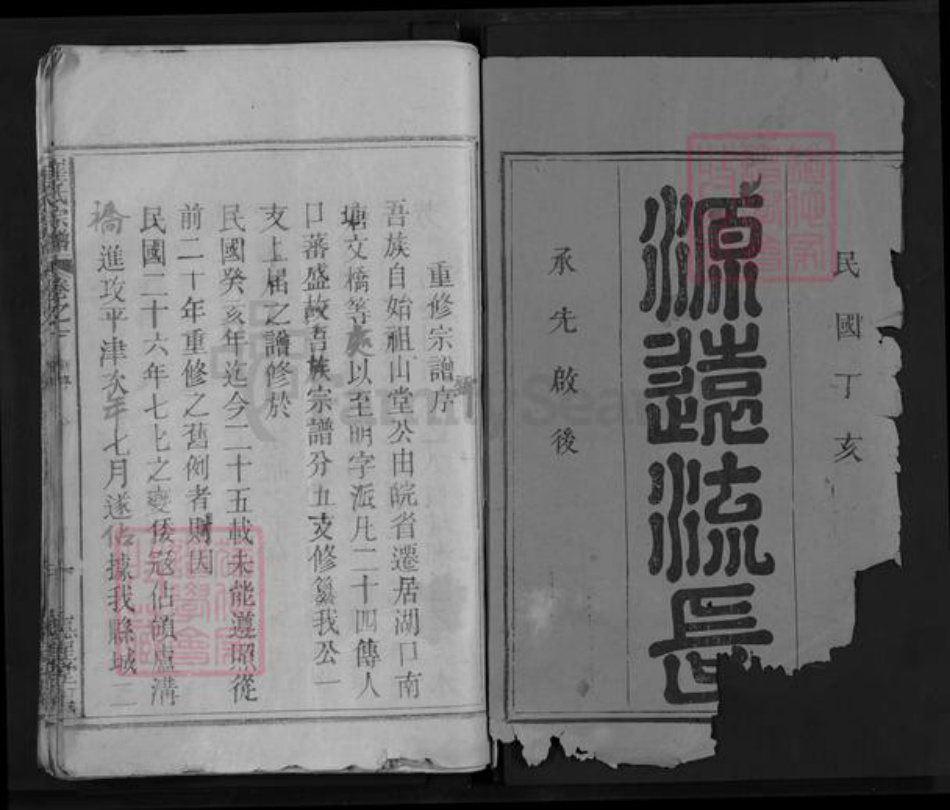 民國丁亥
源遠流長
承先啟後
重修宗譜序
吾族自始祖山堂公由皖省遷居湖口南
塘文橋等處以至明字派凡二十四傳人
口蕃盛故吾族宗譜分五支修纂我公一
支上屆之譜修於
民國癸亥年迄今二十五載未能遵照從
前二十年重修之舊例者則因
民國二十六年七七之變倭寇佔領盧溝
橋進攻平津次年七月遂佔據我縣城二
氏宗譜 卷之
FamilySea